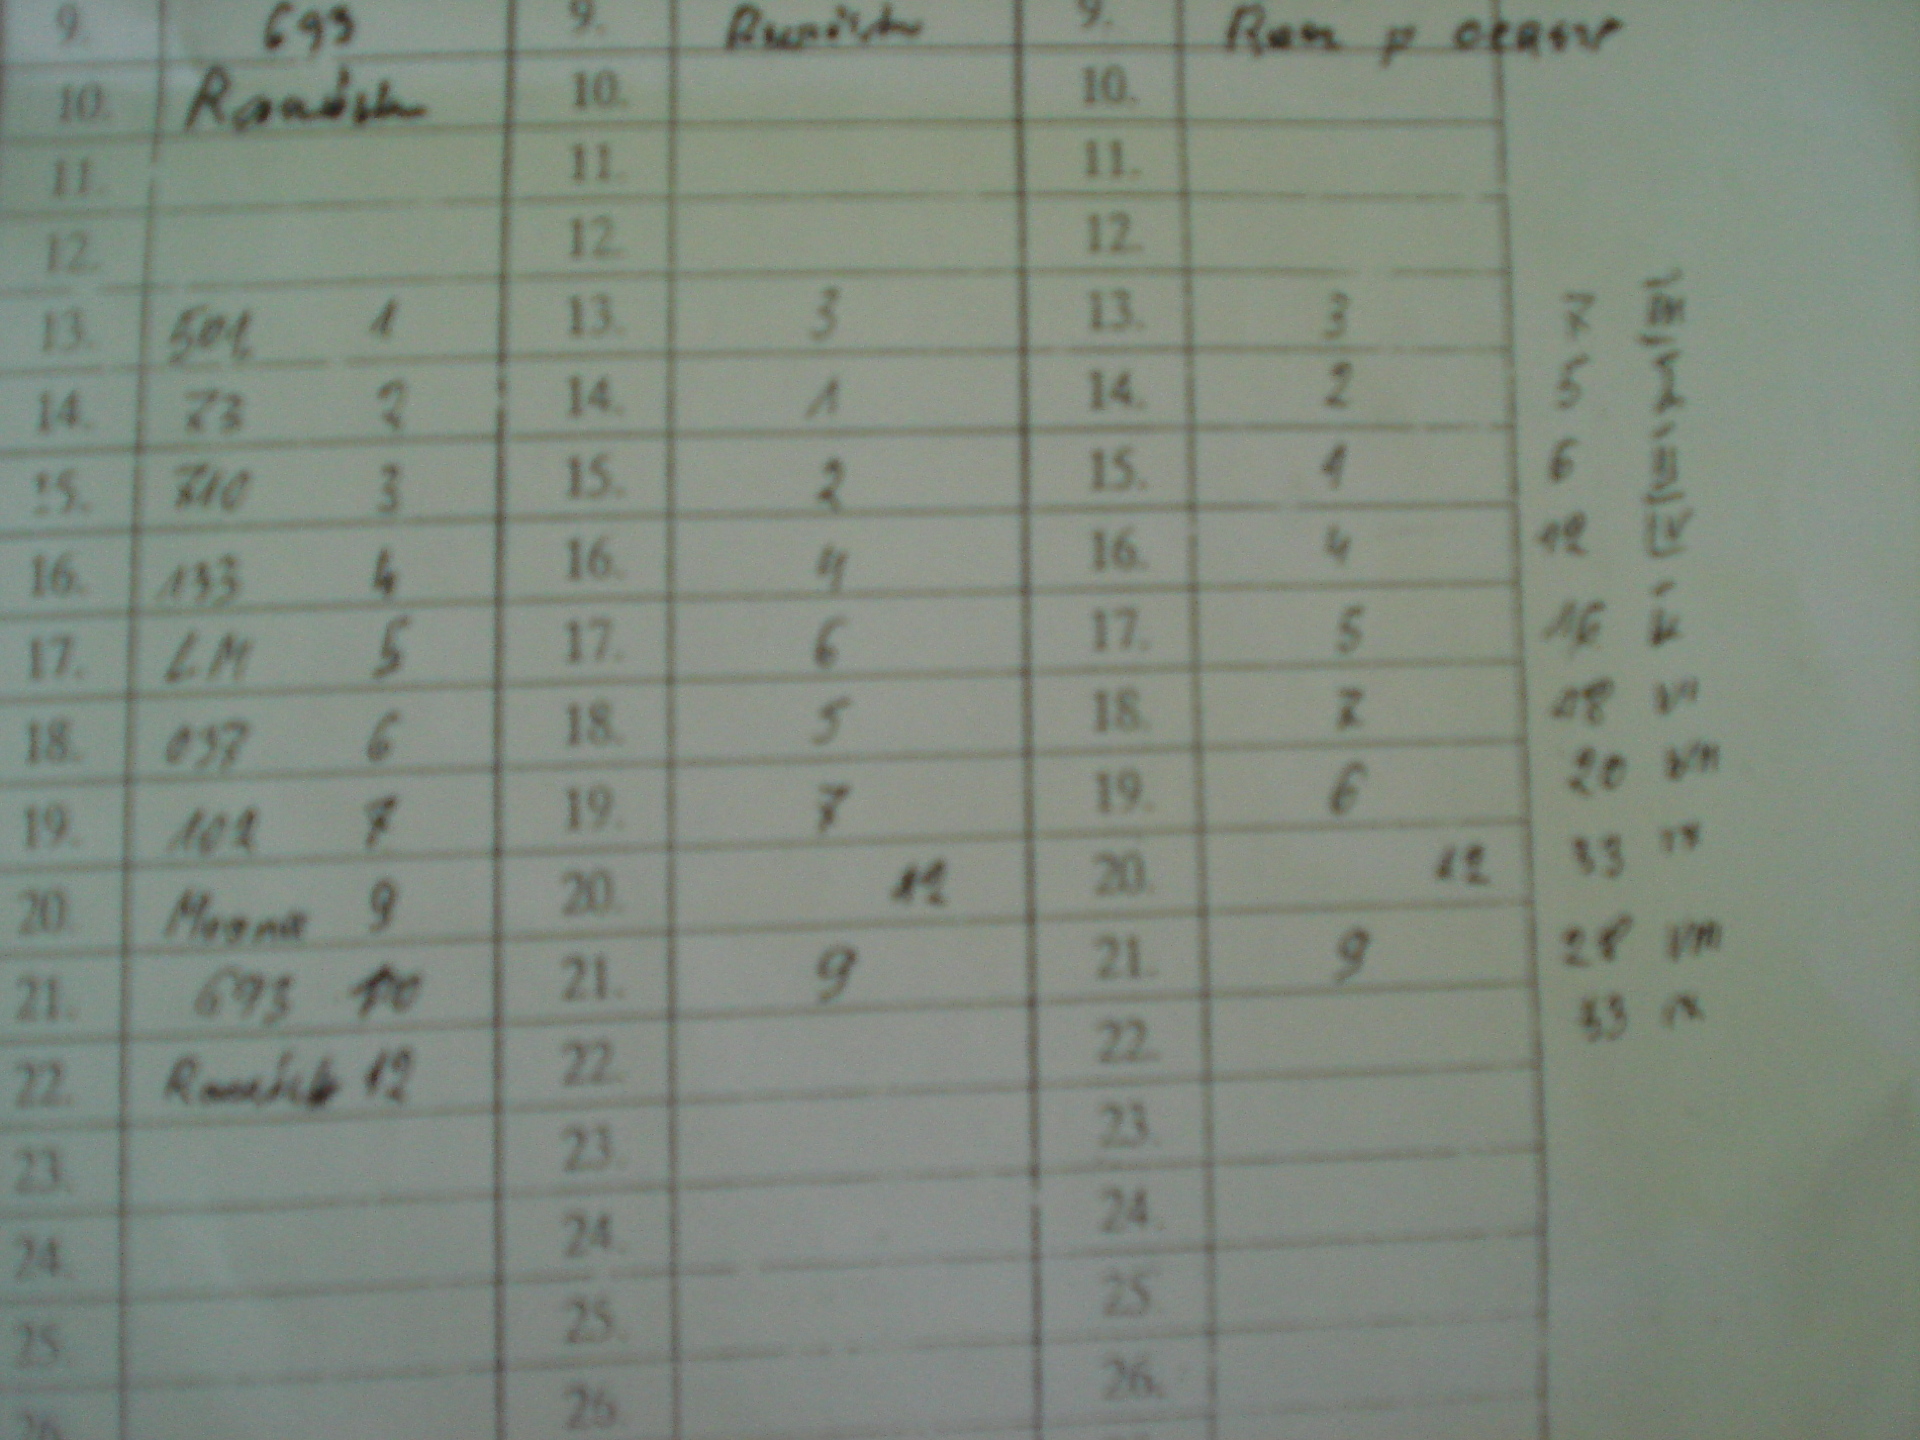 9. 693 9. 9. Ram
10. 10. 10.
11. 11. 11.
12. 12. 12.
13. 501 1 13. 3 13. 3 7 III
14. 73 2 14. 1 14. 2 5 I
15. 710 3 15. 2 15. 1 6 II
16. 133 4 16. 4 16. 4 12 IV
17. LM 5 17. 6 17. 5 16 V
18. 037 6 18. 5 18. 7 18 VI
19. 102 7 19. 7 19. 6 20 VII
20. 9 20. 12 20. 12 33 IX
21. 693 10 21. 9 21. 9 28 VIII
22. 12 22. 22. 33 IX
23. 23. 23.
24. 24. 24.
25. 25. 25.
26. 26. 26.